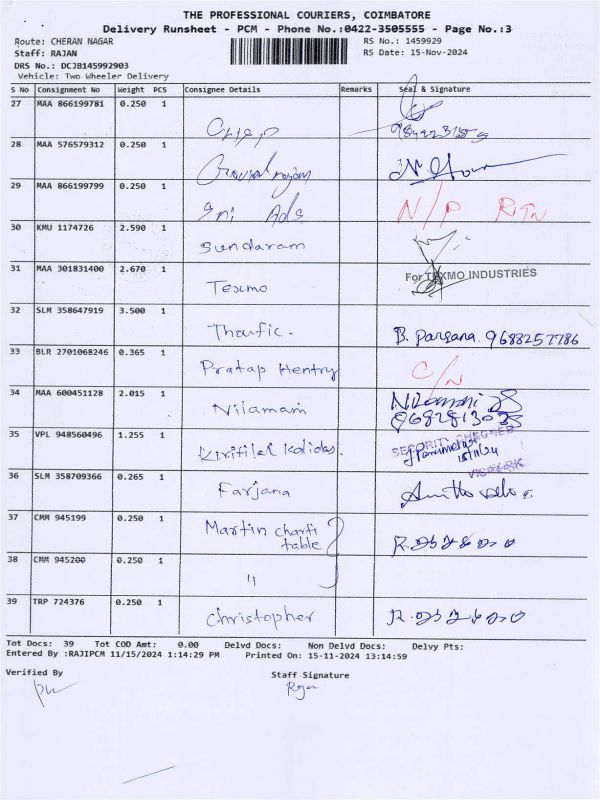 THE PROFESSIONAL COURIERS, COIMBATORE
Delivery Runsheet - PCM - Phone No.:0422-3505555 - Page No.:3
Route: CHERAN NAGAR RS No.: 1459929
Staff: RAJAN RS Date: 15-Nov-2024
DRS No.: DCJB145992903
Vehicle: Two Wheeler Delivery
S No Consignment No Weight PCS Consignee Details Remarks Seal & Signature
27 MAA 866199781 0.250 1
28 MAA 576579312 0.250 1
29 MAA 866199799 0.250 1 Sri Ads N/P RTN
30 KMU 1174726 2.590 1 Sundaram
31 MAA 301831400 2.670 1 Texmo For TEXMO INDUSTRIES
32 SLM 358647919 3.500 1 Thoufic. B. Parsana. 9688257786
33 BLR 2701068246 0.365 1 Pratap Hentry C/N
34 MAA 600451128 2.015 1 Nilamani
35 VPL 948560496 1.255 1 Kiritilal Kalidas. SECURITY CHECKED
36 SLM 358709366 0.265 1 Farjana
37 CMM 945199 0.250 1 Martin chariti
table
38 CMM 945200 0.250 1 "
39 TRP 724376 0.250 1 Christopher
Tot Docs: 39 Tot COD Amt: 0.00 Delvd Docs: Non Delvd Docs: Delvy Pts:
Entered By :RAJIPCM 11/15/2024 1:14:29 PM Printed On: 15-11-2024 13:14:59
Verified By Staff Signature